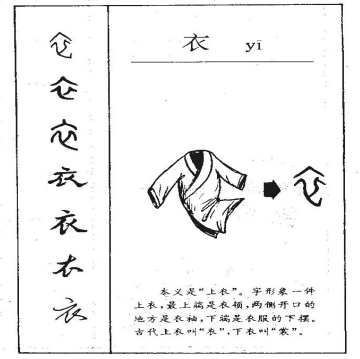 衣 yī
衣
衣
衣
衣
衣
衣
衣
本义是“上衣”。字形象一件
上衣，最上端是衣领，两侧开口的
地方是衣袖，下端是衣服的下摆。
古代上衣叫“衣”，下衣叫“裳”。